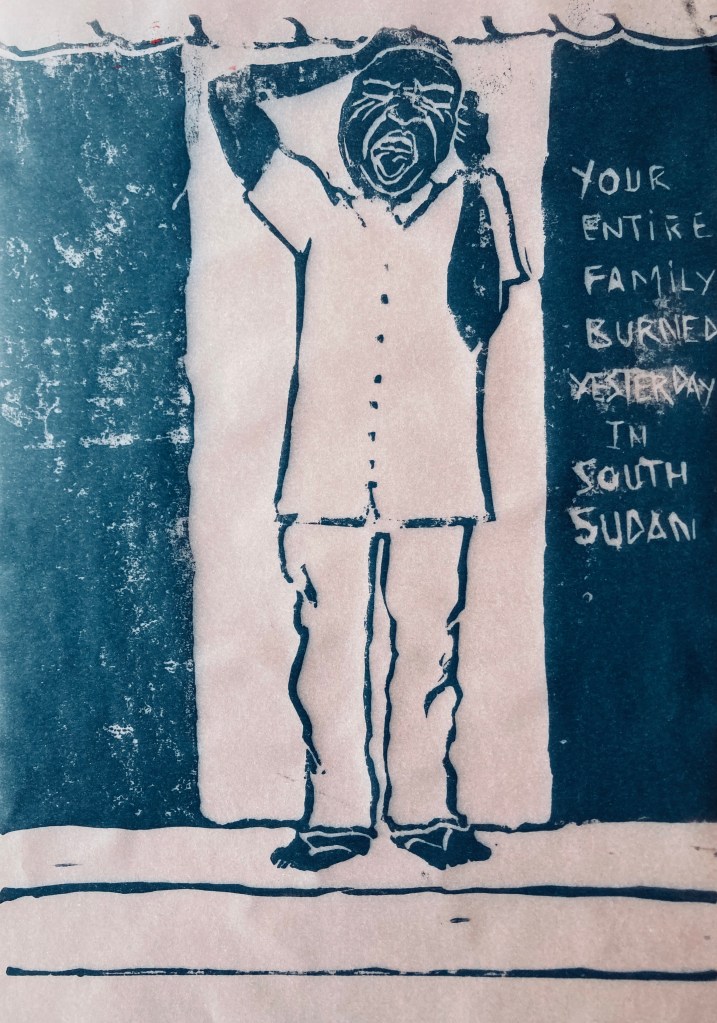 YOUR
ENTIRE
FAMILY
BURNED
YESTERDAY
IN
SOUTH
SUDAN